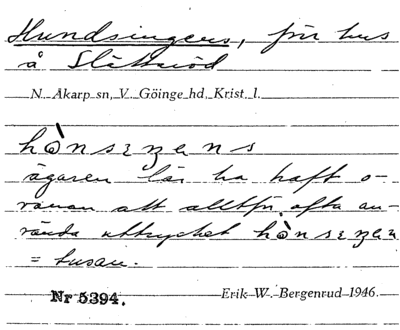 Hundsingers, för hus
å Slättaröd
N. Åkarp sn, V. Göinge hd, Krist. l.
ägaren lär ha haft o-
vanan att alltför ofta an-
vända uttrycket
= tusan.
Nr 5394. Erik W. Bergenrud 1946.